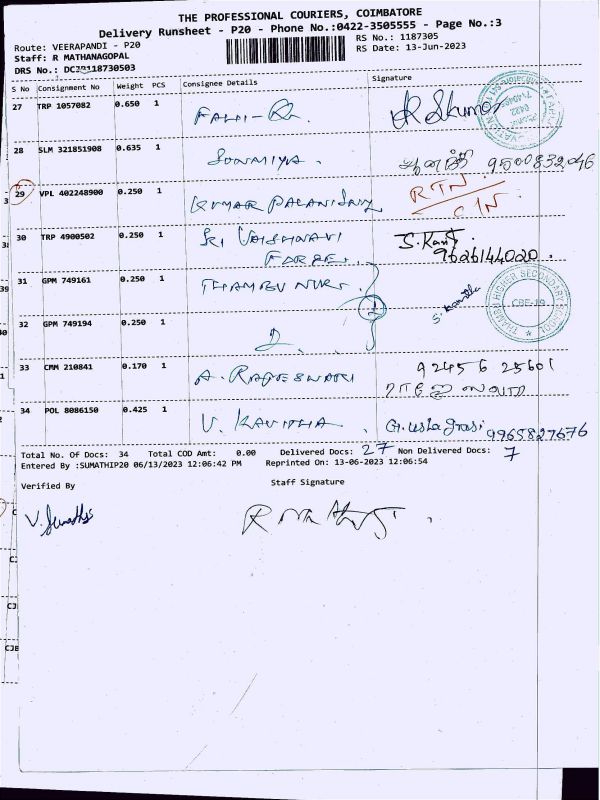 THE PROFESSIONAL COURIERS, COIMBATORE
Delivery Runsheet - P20 - Phone No.:0422-3505555 - Page No.:3
Route: VEERAPANDI - P20
RS No.: 1187305
Staff: R MATHANAGOPAL
RS Date: 13-Jun-2023
DRS No.: DC20118730503
S No Consignment No Weight PCS Consignee Details Signature
27 TRP 1057082 0.650 1
28 SLM 321851908 0.635 1 SOWMIYA. 9500832046
29 VPL 402248900 0.250 1 KUMAR PALANISAMY RTN
30 TRP 4900502 0.250 1 SRI VAISHNAVI 9626144020.
31 GPM 749161 0.250 1
32 GPM 749194 0.250 1 2
THAMBU HIGHER SECONDARY SCHOOL CBE-19
33 CMM 210841 0.170 1 A. RAJESWARI 92456 25601
ராஜேஸ்வரி
34 POL 8086150 0.425 1 V. KAVITHA. 9965827676
Total No. Of Docs: 34 Total COD Amt: 0.00 Delivered Docs: 27 Non Delivered Docs: 7
Entered By :SUMATHIP20 06/13/2023 12:06:42 PM Reprinted On: 13-06-2023 12:06:54
Verified By Staff Signature
V. Sumathi